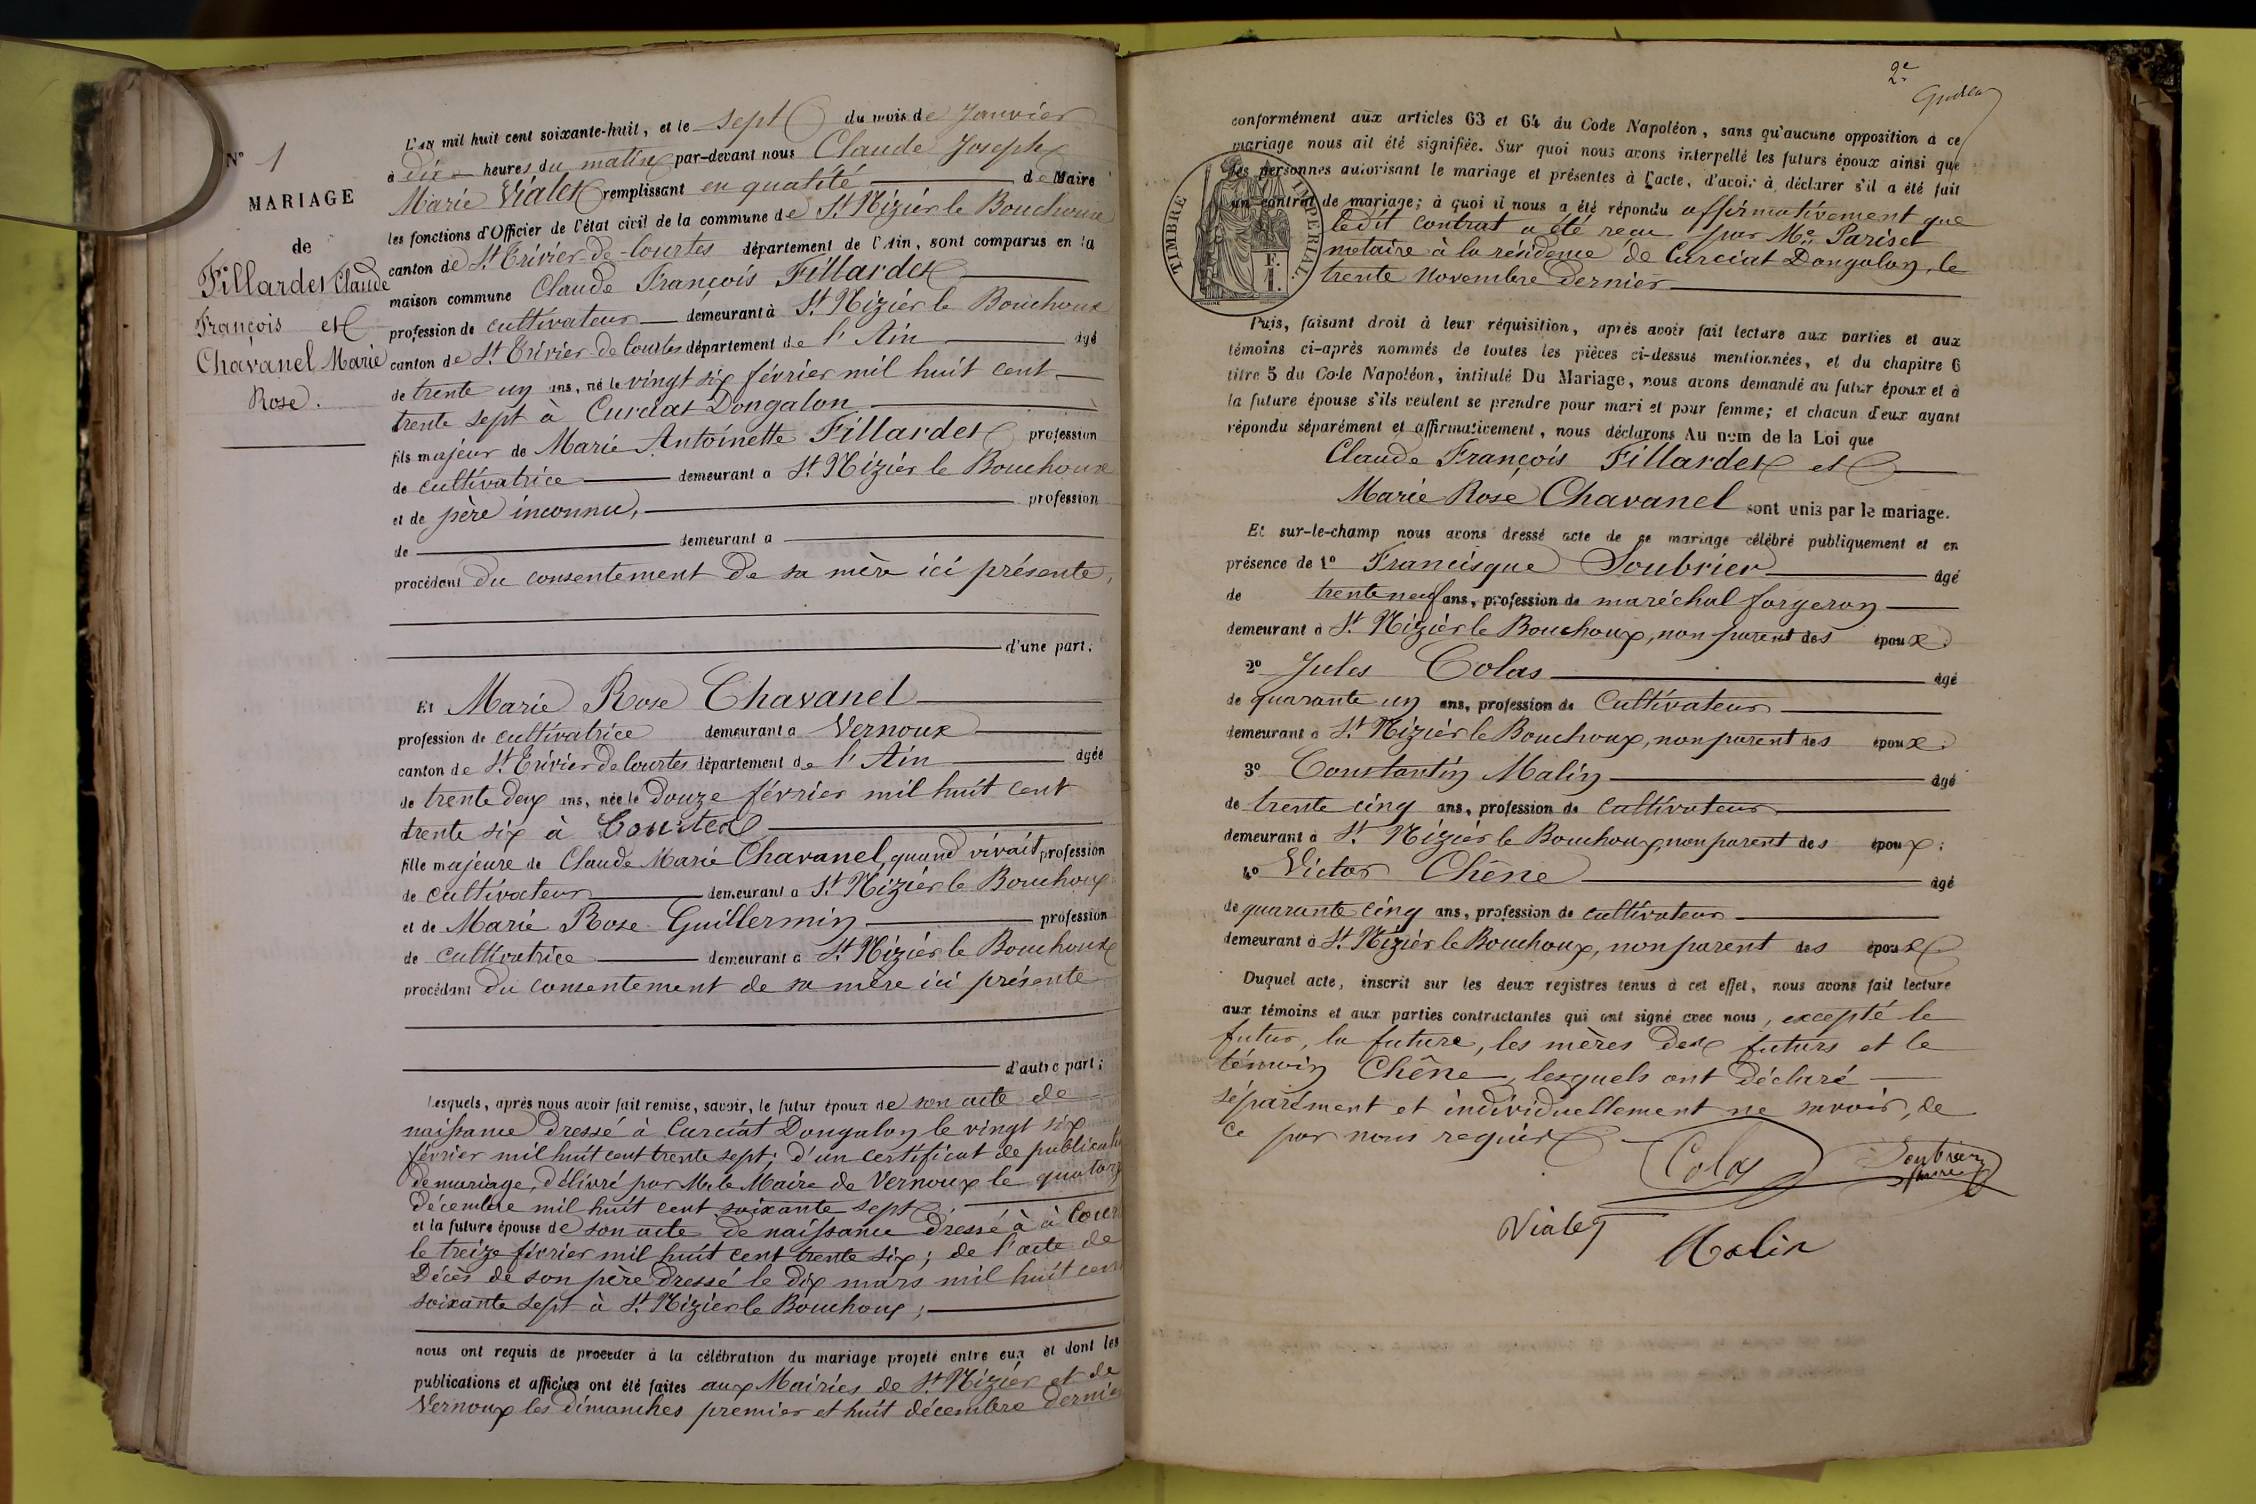 N° 1
MARIAGE
de
Fillardet Claude
François et
Chavanel Marie
Rose.
L'an mil huit cent soixante-huit, et le sept du mois de Janvier
à dix heures du matin par-devant nous Claude Joseph
Marie Vialet remplissant en qualité de Maire
les fonctions d'Officier de l'état civil de la commune de St Nizier le Bouchoux
canton de St Trivier-de-Courtes département de l'Ain, sont comparus en la
maison commune Claude François Fillardet
profession de cultivateur demeurant à St Nizier le Bouchoux
canton de St Trivier de Courtes département de l'Ain âgé
de trente un ans, né le vingt six février mil huit cent
trente sept à Curciat Dongalon
fils majeur de Marie Antoinette Fillardet profession
de cultivatrice demeurant à St Nizier le Bouchoux
et de père inconnu, profession
de demeurant à
procédant du consentement de sa mère ici présente,
d'une part.
Et Marie Rose Chavanel
profession de cultivatrice demeurant à Vernoux
canton de St Trivier de Courtes département de l'Ain âgée
de trente deux ans, née le douze février mil huit cent
trente six à Courtes
fille majeure de Claude Marie Chavanel, quand vivait profession
de cultivateur demeurant à St Nizier le Bouchoux
et de Marie Rose Guillermin profession
de cultivatrice demeurant à St Nizier le Bouchoux
procédant du consentement de sa mère ici présente
d'autre part;
Lesquels, après nous avoir fait remise, savoir, le futur époux de son acte de
naissance dressé à Curciat Dongalon le vingt six
février mil huit cent trente sept; d'un certificat de publicat
de mariage, délivré par Mr le Maire de Vernoux le quatorz
décembre mil huit cent soixante sept;
et la future épouse de son acte de naissance dressé à à Cour
le treize février mil huit cent trente six; de l'acte de
Décès de son père dressé le dix mars mil huit cent
soixante sept à St Nizier le Bouchoux;
nous ont requis de procéder à la célébration du mariage projeté entre eux et dont les
publications et affiches ont été faites aux Mairies de St Nizier et de
Vernoux les dimanches premier et huit décembre dernier
2e
conformément aux articles 63 et 64 du Code Napoléon, sans qu'aucune opposition à ce
mariage nous ait été signifiée. Sur quoi nous avons interpellé les futurs époux ainsi que
les personnes autorisant le mariage et présentes à l'acte, d'avoir à déclarer s'il a été fait
un contrat de mariage; à quoi il nous a été répondu affirmativement que
ledit contrat a été reçu par Me Pariset
notaire à la résidence de Curciat Dongalon, le
trente Novembre dernier
TIMBRE IMPERIAL.
F.
1.
Puis, faisant droit à leur réquisition, après avoir fait lecture aux parties et aux
témoins ci-après nommés de toutes les pièces ci-dessus mentionnées, et du chapitre 6
titre 5 du Code Napoléon, intitulé Du Mariage, nous avons demandé au futur époux et à
la future épouse s'ils veulent se prendre pour mari et pour femme; et chacun d'eux ayant
répondu séparément et affirmativement, nous déclarons Au nom de la Loi que
Claude François Fillardet et
Marie Rose Chavanel sont unis par le mariage.
Et sur-le-champ nous avons dressé acte de ce mariage célébré publiquement et en
présence de 1° Francisque Soubrier âgé
de trente neuf ans, profession de maréchal forgeron
demeurant à St Nizier le Bouchoux, non parent des époux.
2° Jules Colas âgé
de quarante un ans, profession de Cultivateur
demeurant à St Nizier le Bouchoux, non parent des époux.
3° Constantin Malin âgé
de trente cinq ans, profession de cultivateur
demeurant à St Nizier le Bouchoux, non parent des époux;
4° Victor Chêne âgé
de quarante cinq ans, profession de cultivateur
demeurant à St Nizier le Bouchoux, non parent des époux
Duquel acte, inscrit sur les deux registres tenus à cet effet, nous avons fait lecture
aux témoins et aux parties contractantes qui ont signé avec nous, excepté le
futur, la future, les mères des futurs et le
témoin Chêne, lesquels ont déclaré
séparément et individuellement ne savoir, de
ce par nous requis
Colas Soubrier
Vialet
Malin